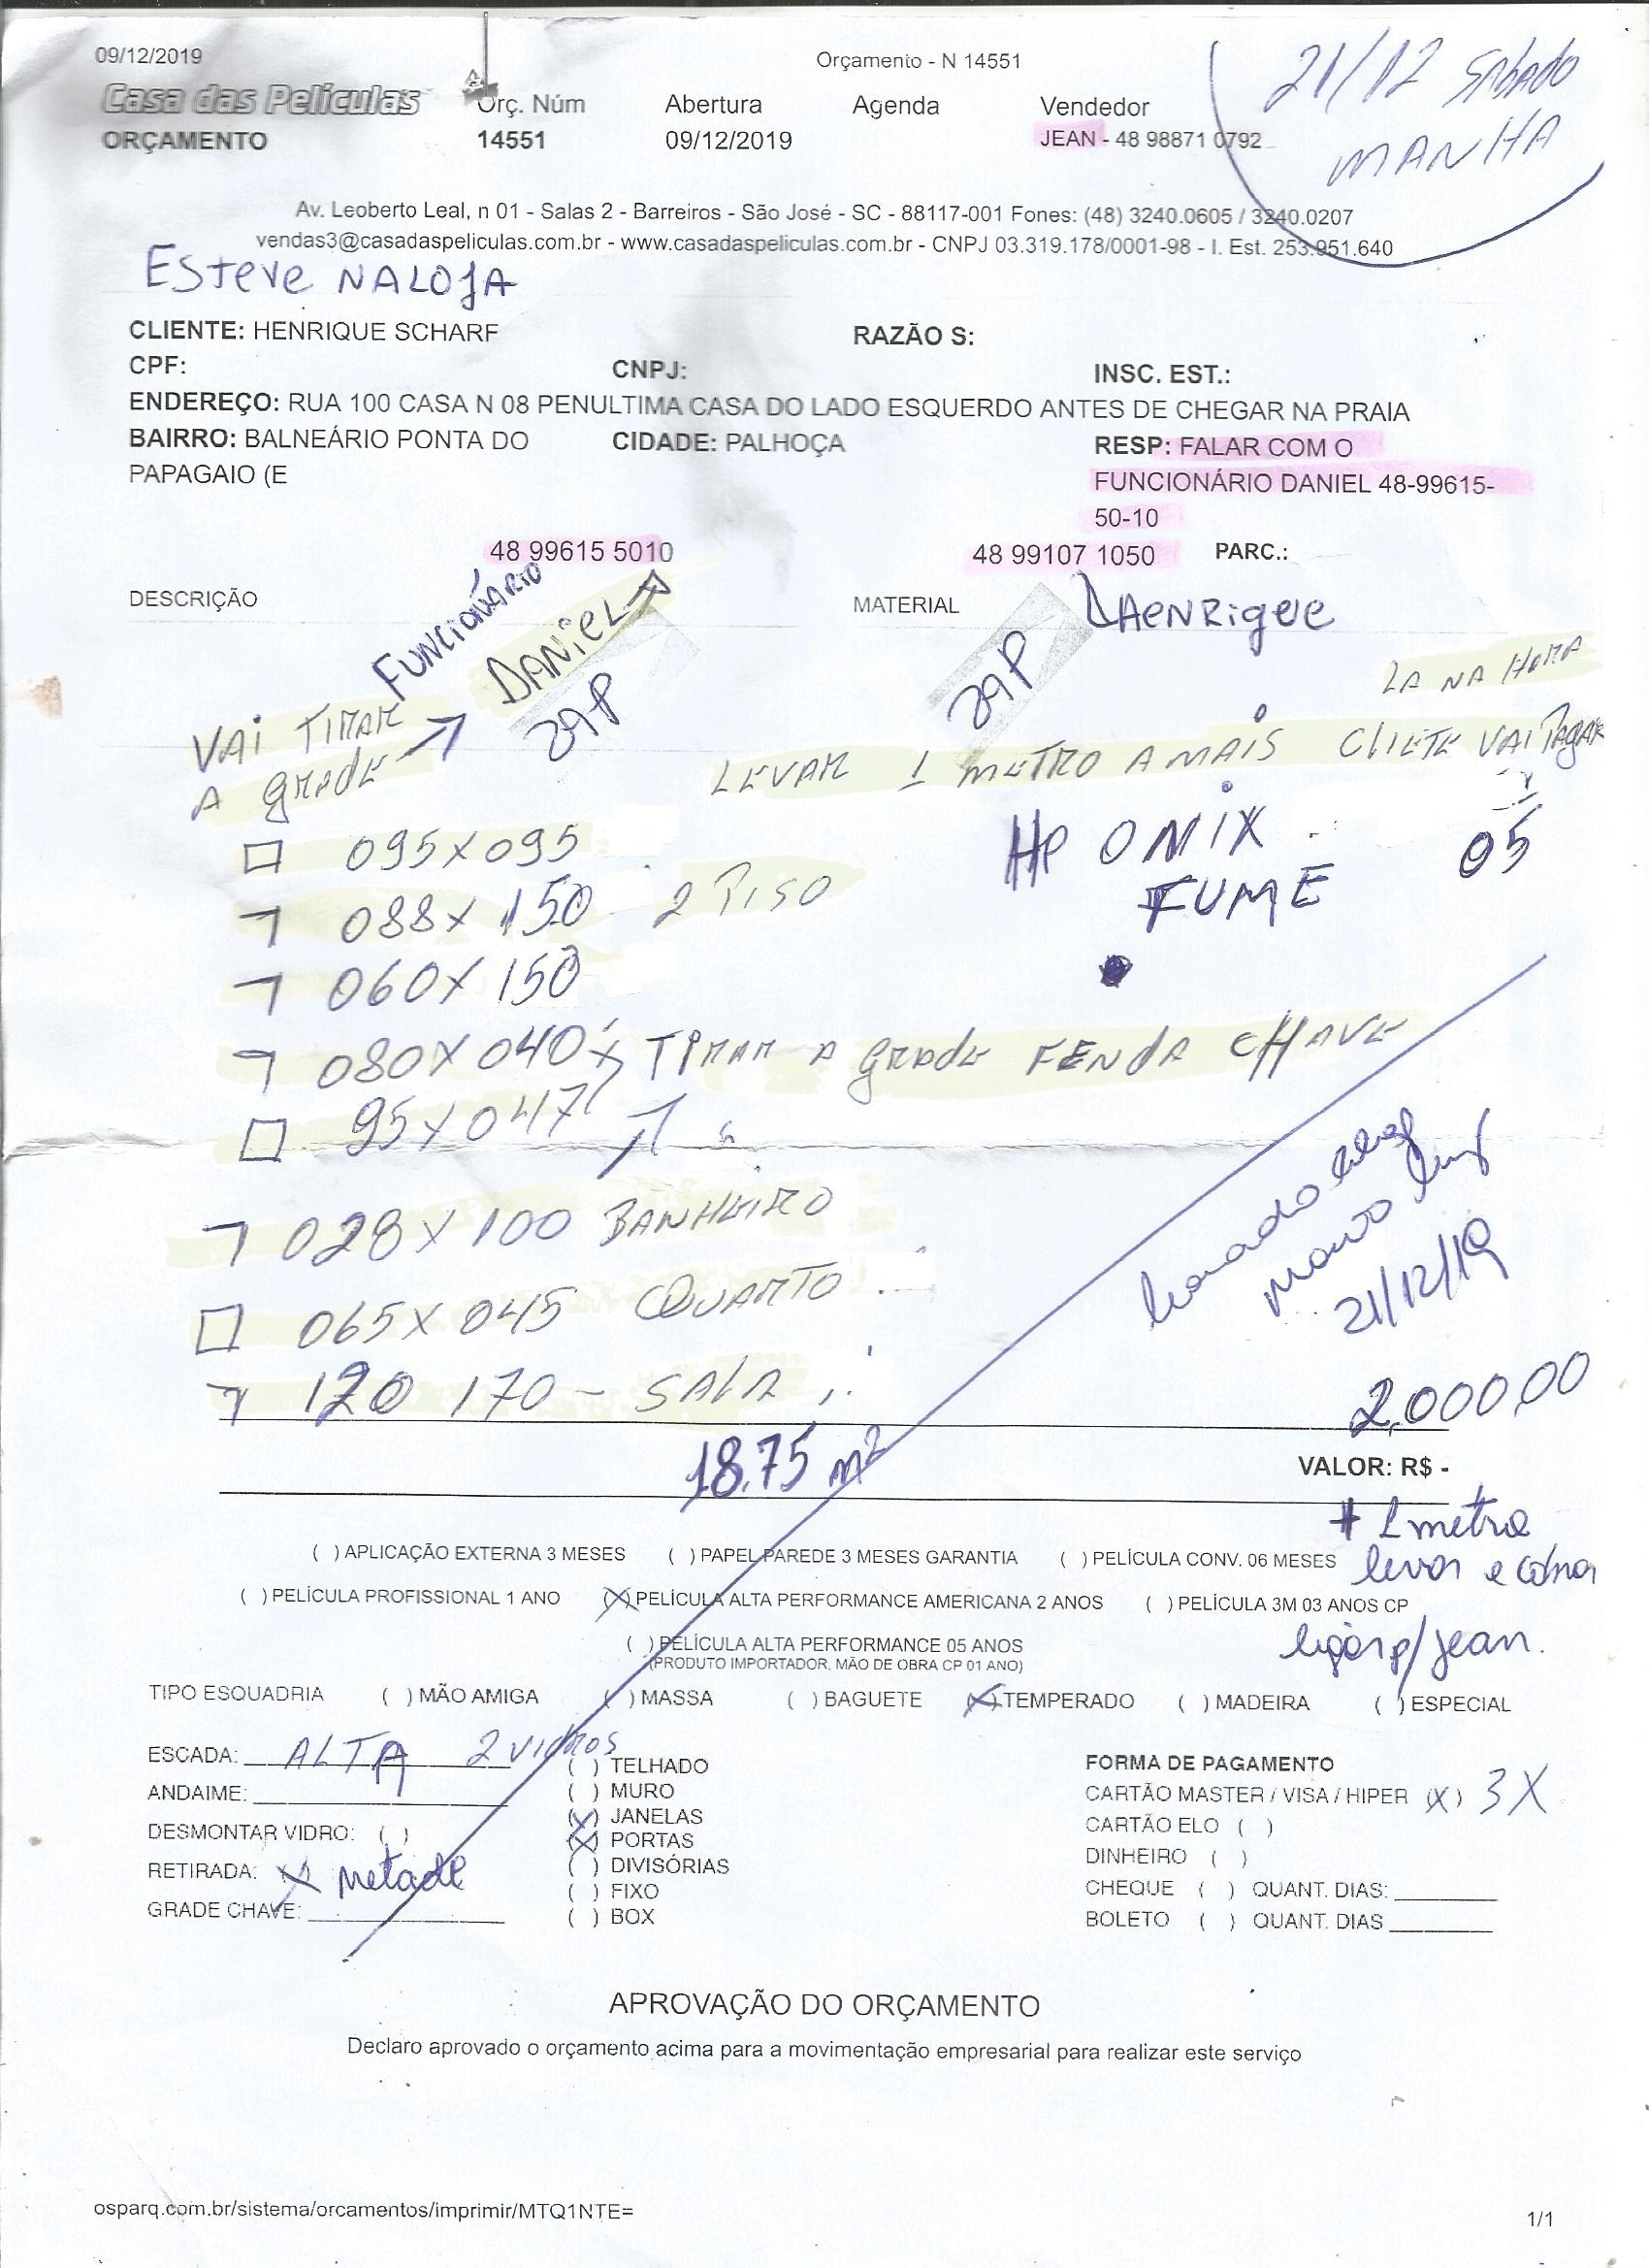 09/12/2019
Orçamento - N 14551
21/12 SABADO
MANHA
Casa das Películas
Orç. Núm
Abertura
Agenda
Vendedor
ORÇAMENTO
14551
09/12/2019
JEAN - 48 98871 0792
Av. Leoberto Leal, n 01 - Salas 2 - Barreiros - São José - SC - 88117-001 Fones: (48) 3240.0605 / 3240.0207
vendas3@casadaspeliculas.com.br - www.casadaspeliculas.com.br - CNPJ 03.319.178/0001-98 - I. Est. 253.951.640
ESTEVE NA LOJA
CLIENTE: HENRIQUE SCHARF
RAZÃO S:
CPF:
CNPJ:
INSC. EST.:
ENDEREÇO: RUA 100 CASA N 08 PENULTIMA CASA DO LADO ESQUERDO ANTES DE CHEGAR NA PRAIA
BAIRRO: BALNEÁRIO PONTA DO
CIDADE: PALHOÇA
RESP: FALAR COM O
PAPAGAIO (E
FUNCIONÁRIO DANIEL 48-99615-
50-10
48 99615 5010
48 99107 1050
PARC.:
DESCRIÇÃO
MATERIAL
HENRIQUE
FUNCIONÁRIO
DANIEL
LA NA HORA
VAI TIRAR
A GRADE
LEVAR 1 METRO A MAIS CLIETE VAI PAGAR
095 X 095
HP ONIX 05
088 X 150 2 PISO
FUME
060 X 150
080 X 040 TIRAR A GRADE FENDA CHAVE
95 X 047 "
028 X 100 BANHEIRO
065 X 045 QUARTO
21/12/19
120 170 - SALA
2.000,00
18.75 m²
VALOR: R$ -
+ 1 metro
levar e cobrar
( ) APLICAÇÃO EXTERNA 3 MESES ( ) PAPEL PAREDE 3 MESES GARANTIA ( ) PELÍCULA CONV. 06 MESES
( ) PELÍCULA PROFISSIONAL 1 ANO (X) PELÍCULA ALTA PERFORMANCE AMERICANA 2 ANOS ( ) PELÍCULA 3M 03 ANOS CP
( ) PELÍCULA ALTA PERFORMANCE 05 ANOS
(PRODUTO IMPORTADOR, MÃO DE OBRA CP 01 ANO)
ligar p/ Jean.
TIPO ESQUADRIA ( ) MÃO AMIGA ( ) MASSA ( ) BAGUETE (X) TEMPERADO ( ) MADEIRA ( ) ESPECIAL
ESCADA: ALTA 2 VIDROS
( ) TELHADO
FORMA DE PAGAMENTO
ANDAIME:
( ) MURO
CARTÃO MASTER / VISA / HIPER (X) 3X
(X) JANELAS
DESMONTAR VIDRO: ( )
(X) PORTAS
CARTÃO ELO ( )
RETIRADA: (X) Metade
( ) DIVISÓRIAS
DINHEIRO ( )
( ) FIXO
CHEQUE ( ) QUANT. DIAS:
GRADE CHAVE:
( ) BOX
BOLETO ( ) QUANT. DIAS
APROVAÇÃO DO ORÇAMENTO
Declaro aprovado o orçamento acima para a movimentação empresarial para realizar este serviço
osparq.com.br/sistema/orcamentos/imprimir/MTQ1NTE=
1/1